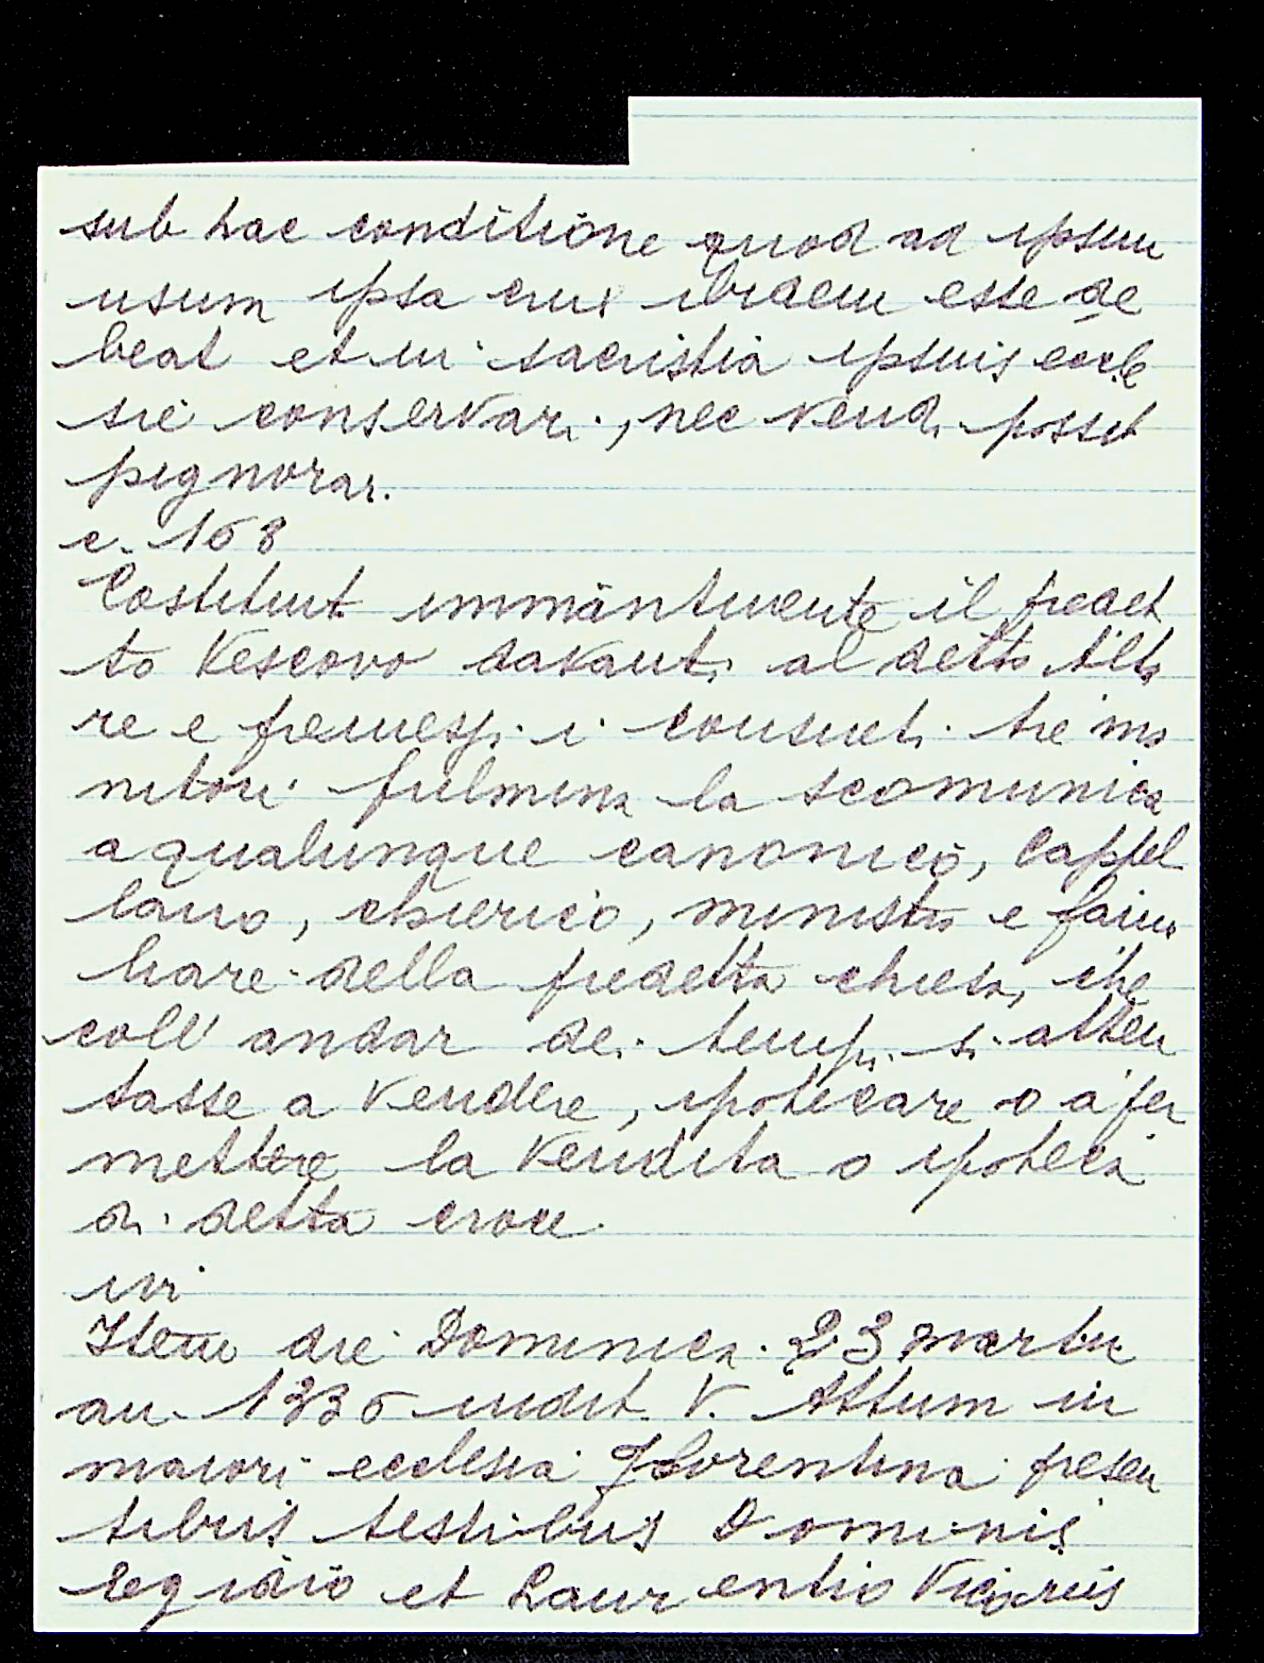 sub hac conditione quod ad ipsum
usum ipsa crux ibidem esse de
beat et in sacristia ipsius eccle
sie conservari, nec vendi possit
pignorari.
c. 168
Costituit immantinente il predet
to Vescovo davanti al detto Alta
re e premessi i consueti tre mo
nitori fulmina la scomunica
a qualunque canonico, Cappel
lano, chierico, ministro e fami
liare della predetta chiesa, che
coll' andar dei tempi si atten
tasse a vendere, ipotecare o a per
mettere la vendita o ipoteca
di detta croce
ivi
Item die Dominica 23 martii
an. 1336 indit. V. Attum in
maiori ecclesia Florentina presen
tibus testibus Dominis
Egidio et Laurentio Vicariis